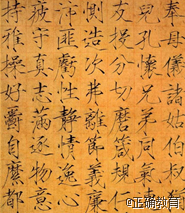 奉母儀諸姑伯叔
兒孔懷兄弟同氣
友投分切磨箴規仁
惻造次弗離節義廉
沛匪虧性靜情逸心
疲守真志滿逐物意
持雅操好爵自縻都
@正确教育